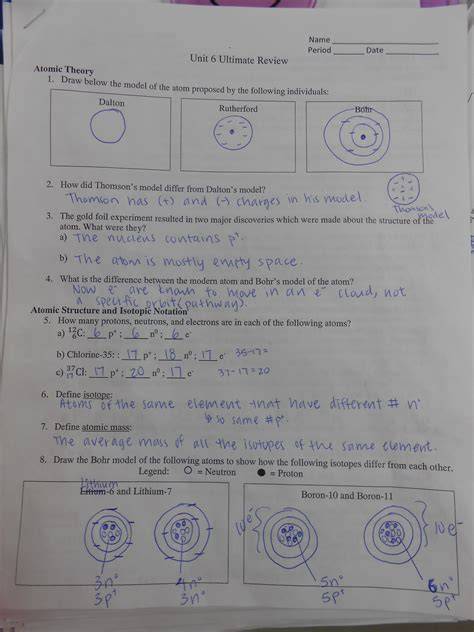 Name
Period Date
Unit 6 Ultimate Review
Atomic Theory
1. Draw below the model of the atom proposed by the following individuals:
Dalton Rutherford Bohr
2. How did Thomson's model differ from Dalton's model?
Thomson has (+) and (-) charges in his model.
Thomson's model
3. The gold foil experiment resulted in two major discoveries which were made about the structure of the
atom. What were they?
a) The nucleus contains p⁺.
b) The atom is mostly empty space.
4. What is the difference between the modern atom and Bohr's model of the atom?
Now e⁻ are known to move in an e⁻ cloud, not
a specific orbit (pathway).
Atomic Structure and Isotopic Notation
5. How many protons, neutrons, and electrons are in each of the following atoms?
a) ¹²₆C: 6 p⁺; 6 n⁰; 6 e⁻
b) Chlorine-35: : 17 p⁺; 18 n⁰; 17 e⁻ 35-17=
c) ³⁷₁₇Cl: 17 p⁺; 20 n⁰; 17 e⁻ 37-17=20
6. Define isotope:
Atoms of the same element that have different # n⁰
so same # p⁺.
7. Define atomic mass:
The average mass of all the isotopes of the same element.
8. Draw the Bohr model of the following atoms to show how the following isotopes differ from each other.
Legend: = Neutron = Proton
Lithium
-6 and Lithium-7 Boron-10 and Boron-11
10e⁻ 10e⁻
3n⁰ 4n⁰ 5n⁰ 6n⁰
3p⁺ 3n⁰ 5p⁺ 5p⁺